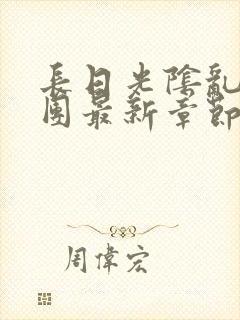 長日光陰亂
團最新章節
周偉宏